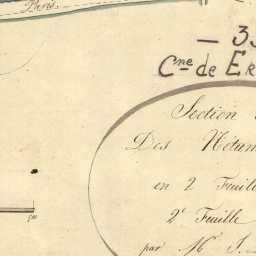 Paris
— 33
Cne de ER
Section
Des
en 2 Feuill
2e Feuille
par Mr